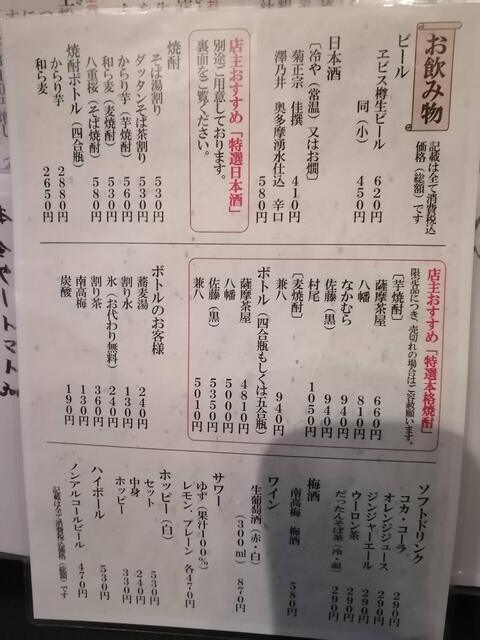 お飲み物
記載は全て消費税込
価格（総額）です
ビール
ヱビス樽生ビール 620円
同（小） 450円
日本酒
〔冷や（常温）又はお燗〕
菊正宗 佳撰 410円
澤乃井 奥多摩湧水仕込 辛口 580円
店主おすすめ「特選日本酒」
別途ご用意しております。
裏面をご覧ください。
焼酎
そば湯割り 530円
ダッタンそば茶割り 530円
からり芋（芋焼酎） 560円
和ら麦（麦焼酎） 530円
八重桜（そば焼酎） 580円
焼酎ボトル（四合瓶）
からり芋 2880円
和ら麦 2650円
店主おすすめ「特選本格焼酎」
限定品につき、売切れの場合はご容赦願います。
〔芋焼酎〕
薩摩茶屋 660円
八幡 810円
なかむら 940円
佐藤（黒） 940円
村尾 1050円
〔麦焼酎〕
兼八 940円
ボトル（四合瓶もしくは五合瓶）
薩摩茶屋 4810円
八幡 5000円
佐藤（黒） 5350円
兼八 5010円
ボトルのお客様
蕎麦湯 240円
割り水 130円
氷（お代わり無料） 240円
割り茶 360円
南高梅 130円
炭酸 190円
ソフトドリンク
コカ・コーラ 290円
オレンジジュース 290円
ジンジャーエール 290円
ウーロン茶 290円
だったんそば茶（冷・温） 290円
梅酒
南高梅 梅酒 580円
ワイン
生葡萄酒（赤・白）
（300ml） 870円
サワー
ゆず（果汁100%）
レモン、プレーン 各470円
ホッピー（白）
セット 530円
中身 240円
ホッピー 330円
ハイボール 530円
ノンアルコールビール 470円
記載は全て消費税込価格（総額）です